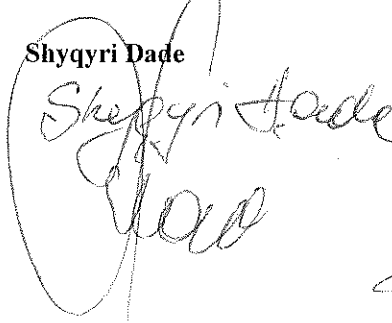 Shyqyri Dade
Shyqyri Dade